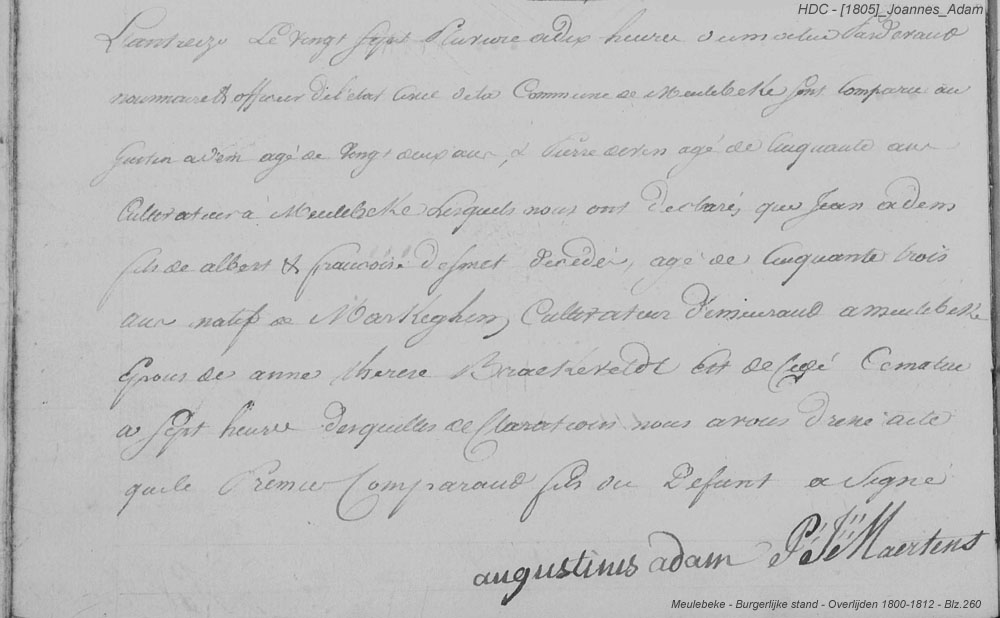 HDC - [1805]_Joannes_Adam
L'an treize Le vingt sept Pluviose a dix heure du matin Pardevand
nous maire & officier de l'etat Civil de la Commune de Meulebeke sont Comparu au
gustin adam agé de Vingt deux ans, & Pierre agé de Cinquante ans
Cultivateur a Meulebeke Lesquels nous ont declarés, que Jean adam
fils de albert & francoise desmet decédé, agé de Cinquante trois
ans natif de Markeghem, Cultivateur demeurand a meulebeke
Epous de anne therese Brackeveldt est decedé Ce matin
a sept heure desquelles declaration nous avons dressé acte
que le Premier Comparand fils du Defunt a Signé
augustinus adam P: J: Maertens
Meulebeke - Burgerlijke stand - Overlijden 1800-1812 - Blz.260